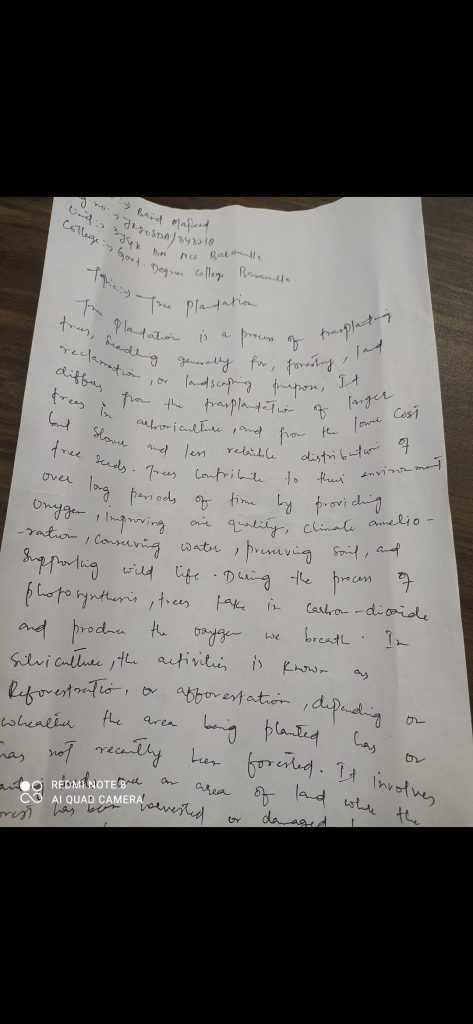 Baid Majeed
no:→ JK20SDA/343210
Unit → 3J&K BN NCC Baramulla
College:→ Govt. Degree College Baramulla
Topic:→ Tree Plantation
Tree Plantation is a process of trasplanting
trees, Seedling generally for, forestry, land
reclamation, or landscaping purpose, It
differs from the trasplantation of larger
trees in arboriculture, and from the lower cost
but slower and less reliable distribution of
tree seeds. Trees contribute to their environment
over long periods of time by providing
oxygen, improving air quality, climate amelio-
-ration, conserving water, preserving soil, and
Supporting wild life. During the process of
photosynthesis, trees take in carbon-dioxide
and produce the oxygen we breath. In
silviculture, the activities is known as
Reforestration, or afforestation, depending on
wheather the area being planted has or
has not recently been forested. It involves
an area of land where the
forest has been harvested or damaged
REDMI NOTE 8
AI QUAD CAMERA